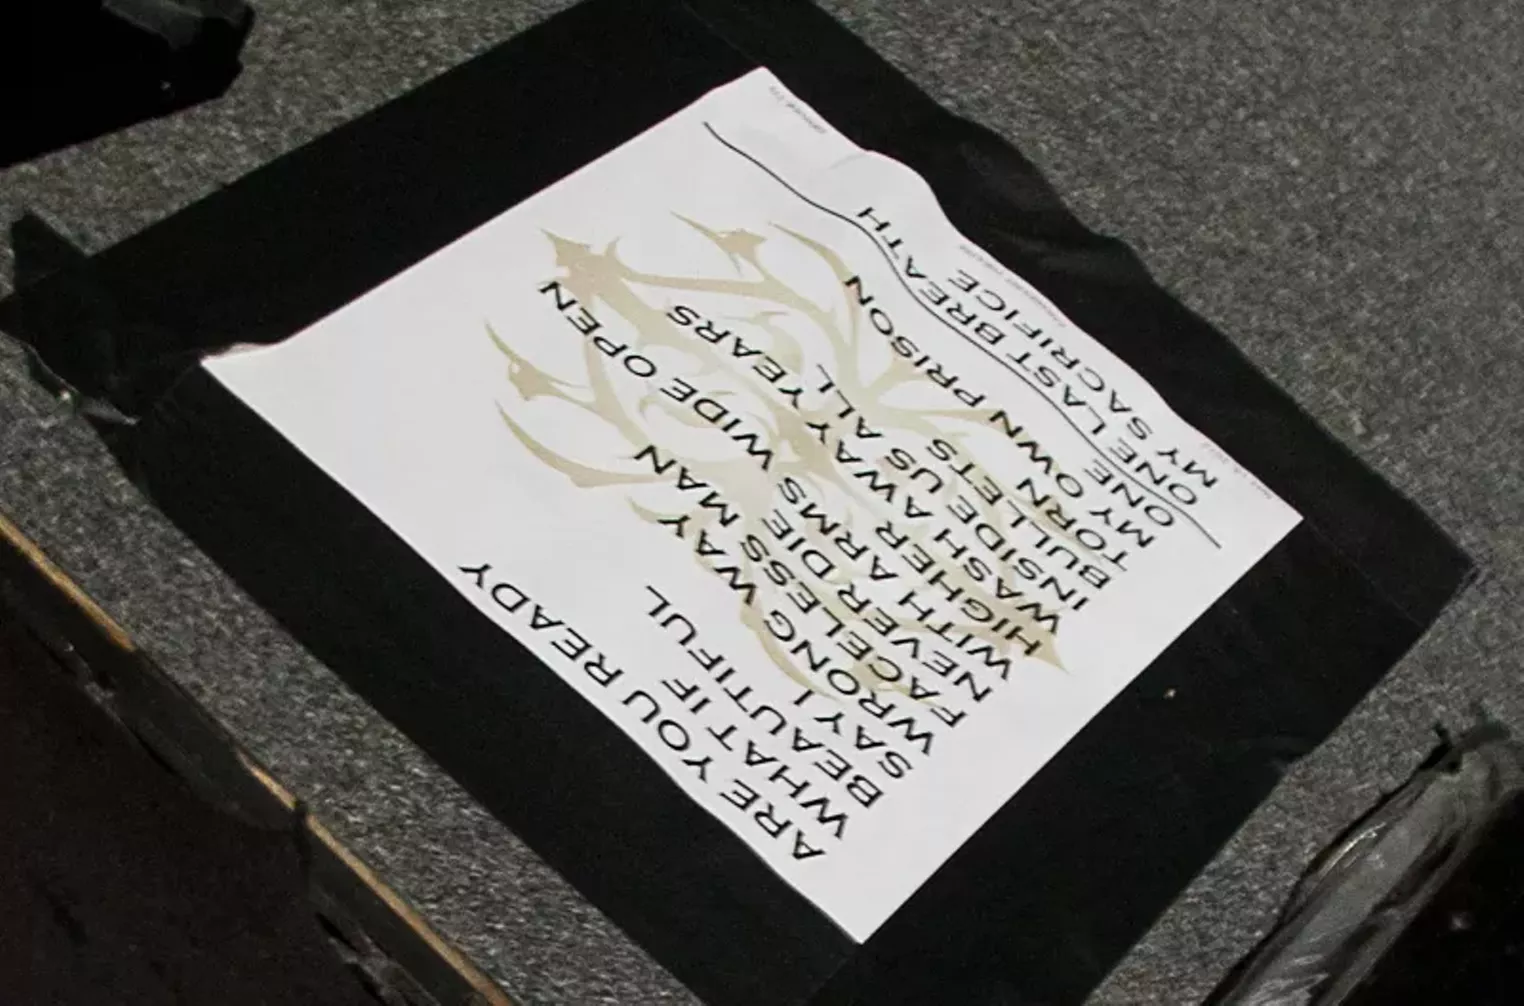 ARE YOU READY
WHAT IF
BEAUTIFUL
SAY I
WRONG WAY
FACELESS MAN
NEVER DIE
WITH ARMS WIDE OPEN
HIGHER
WASH AWAY YEARS
INSIDE US ALL
BULLETS
TORN
MY OWN PRISON
ONE
ONE LAST BREATH
MY SACRIFICE